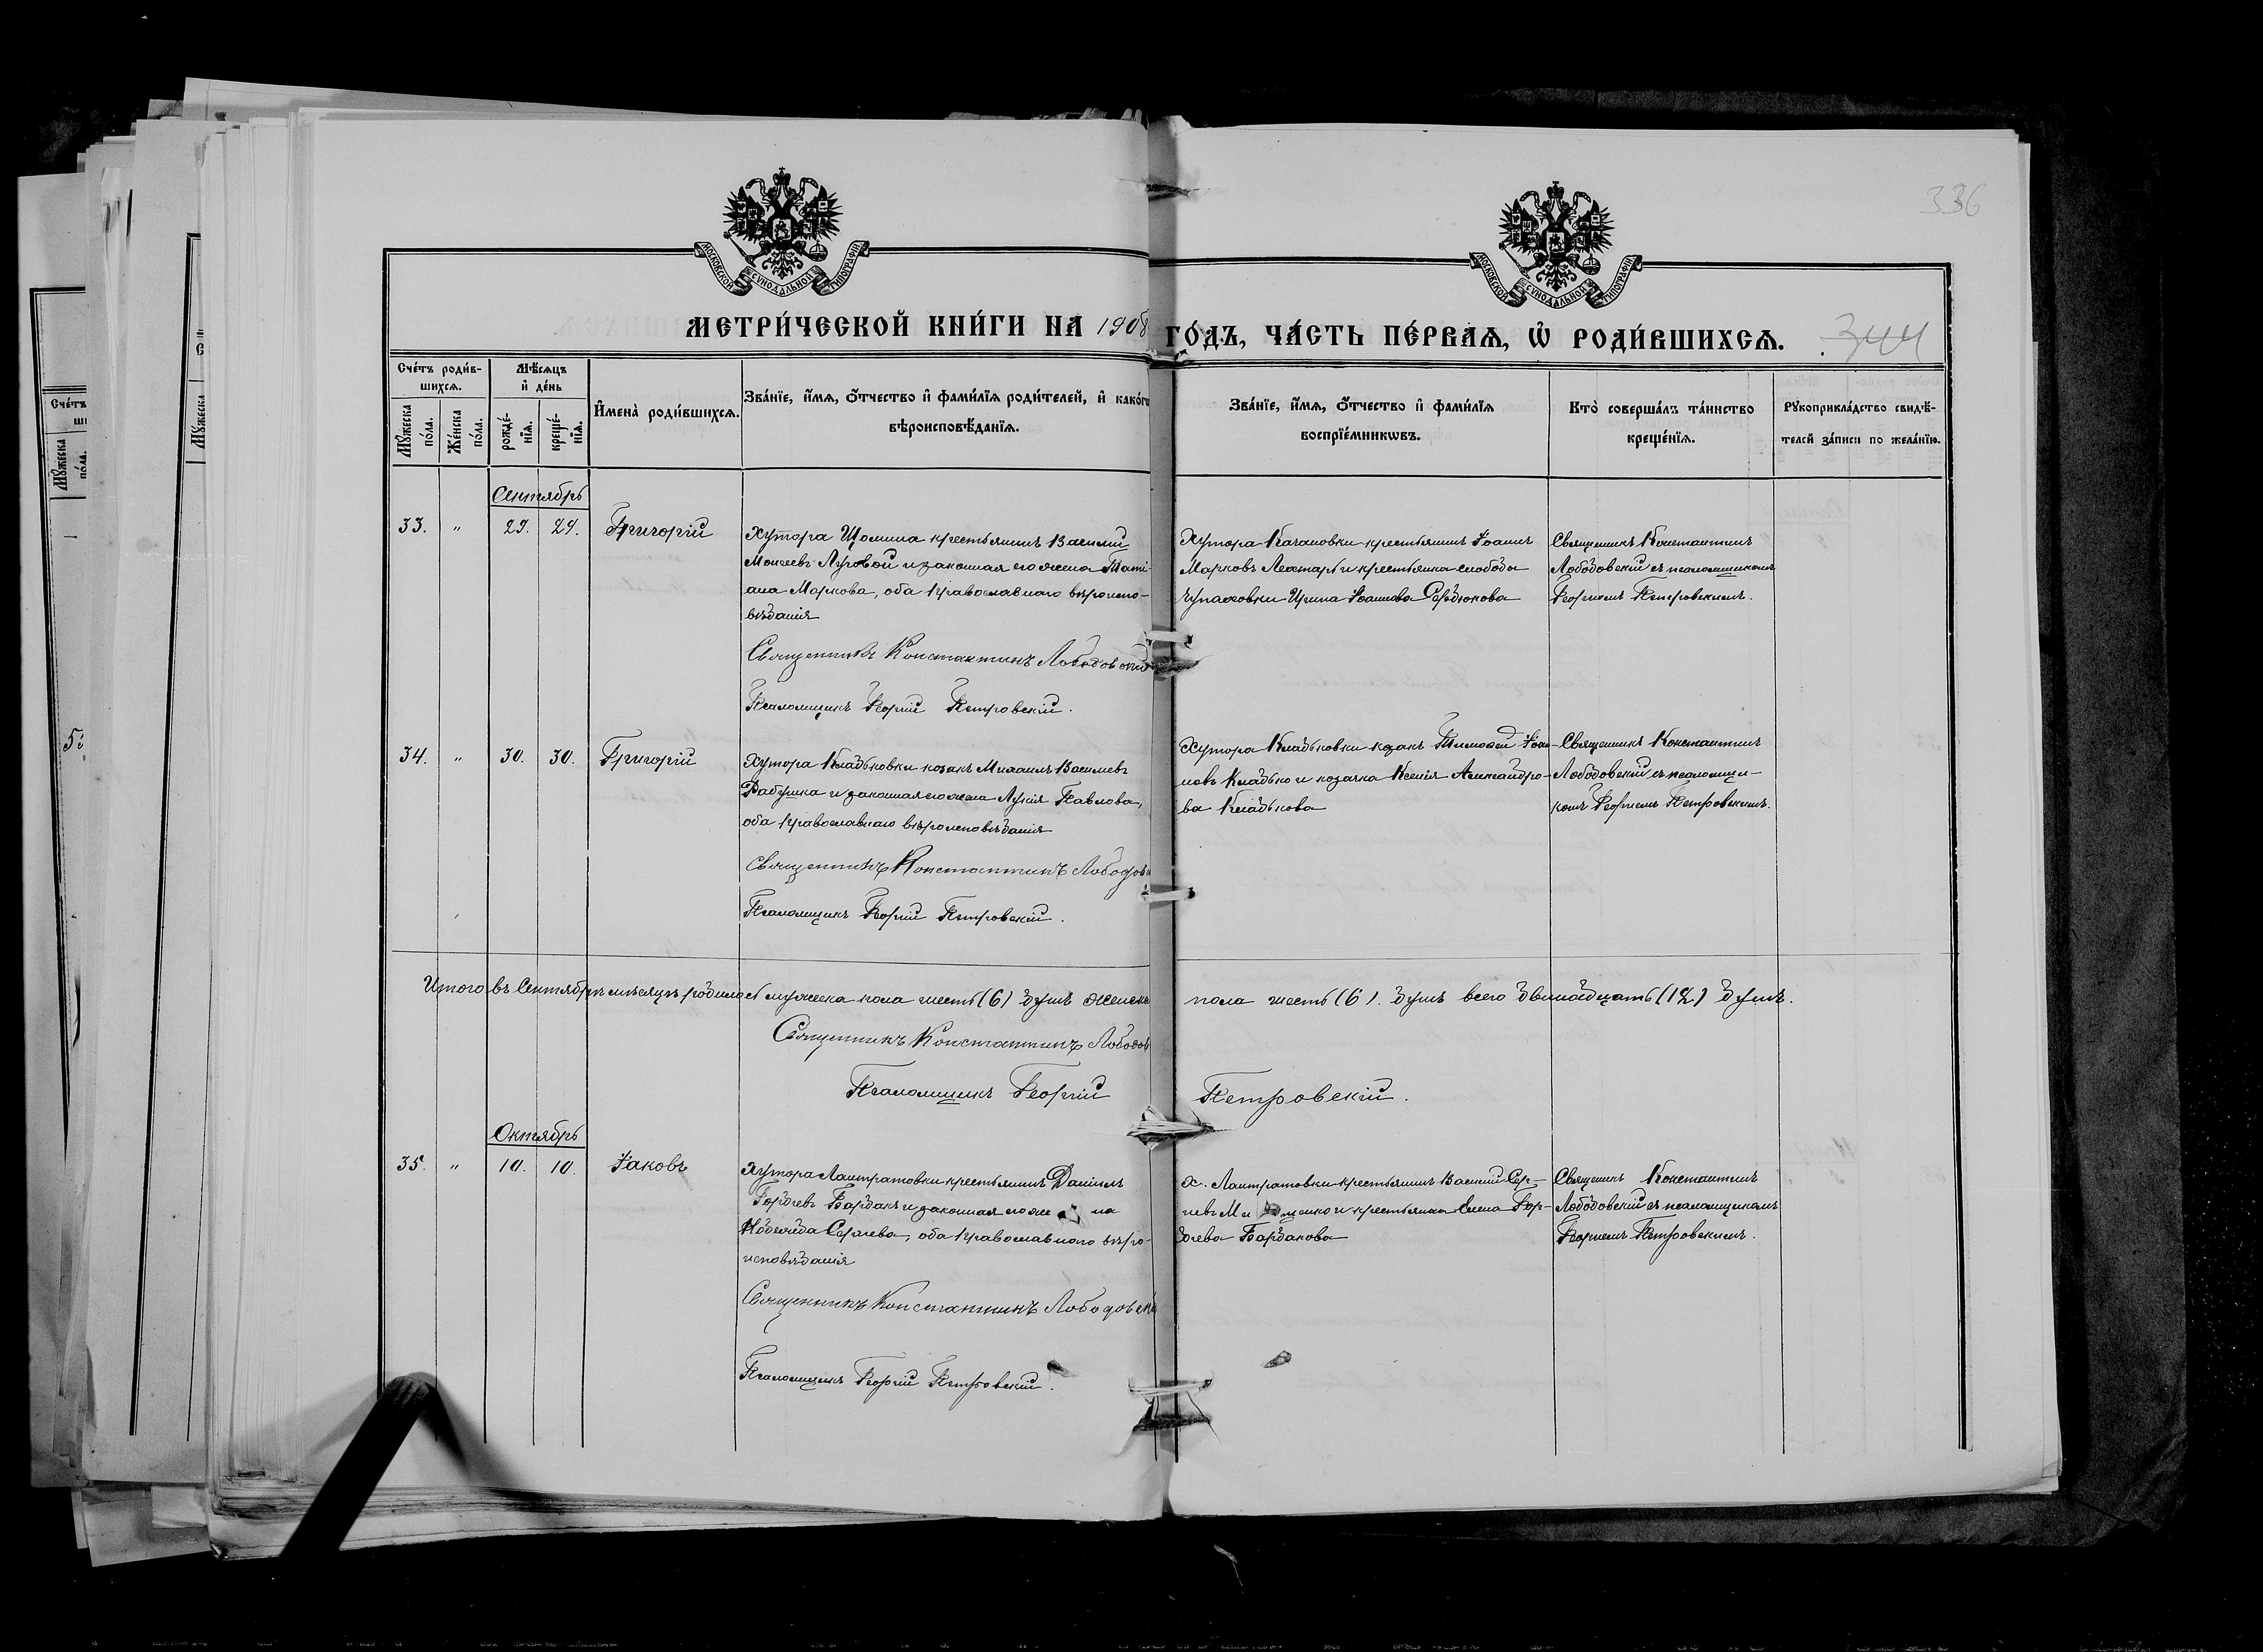 336
МОСКОВСКОЙ СУНОДАЛЬНОЙ ТИПОГРАФІИ
МОСКОВСКОЙ СУНОДАЛЬНОЙ ТИПОГРАФІИ
МЕТРИ́ЧЕСКОЙ КНИ́ГИ НА 1908
ГО́ДЪ, ЧА́СТЬ ПЕ́РВАѦ, Ѡ҆ РОДИ́ВШИХСѦ.
344
Сче́тъ роди́в-
шихсѧ.
Мꙋ́жеска по́ла.
Же́нска по́ла.
Мѣ́сѧцъ
и҆ де́нь
рожде́-
нїѧ.
креще́-
нїѧ.
И҆мена̀ роди́вшихсѧ.
Зва́нїе, и҆́мѧ, о҆́тчество и҆ фами́лїѧ роди́телей, и҆ како́гѡ
вѣроисповѣ́данїѧ.
Зва́нїе, и҆́мѧ, о҆́тчество и҆ фами́лїѧ
воспрїе́мникѡвъ.
Кто̀ соверша́лъ та́инство
креще́нїѧ.
Рꙋкоприкла́дство свидѣ́-
телей за́писи по жела́нїю.
Сентябрь
33. " 29. 29. Григорій
Хутора Щомина крестьянинъ Василій
Моисеевъ Луговой и законная его жена Таті-
ана Маркова, оба православнаго вѣроиспо-
вѣданія
Священникъ Константинъ Лободовскій
Псаломщикъ Георгій Петровскій.
Хутора Качановки крестьянинъ Іоаннъ
Марковъ и крестьянка слободы
Чупаховки Ирина Іоаннова Сердюкова
Священникъ Константинъ
Лободовскій съ псаломщикомъ
Георгіемъ Петровскимъ.
34. " 30. 30. Григорій
Хутора Кладьковки козакъ Михаилъ Васильевъ
Рабушка и законная его жена Лукія Павлова,
оба православнаго вѣроисповѣданія
Священникъ Константинъ Лободовс
Псаломщикъ Георгій Петровскій.
Хутора Кладьковки козакъ Тимоѳей Іоан-
новъ Кладько и козачка Ксенія Александро-
ва Кладькова
Священникъ Константинъ
Лободовскій съ псаломщи-
комъ Георгіемъ Петровскимъ.
Итого въ Сентябрѣ мѣсяцѣ родилось мужеска пола шесть (6) душъ женска пола шесть (6). душъ всего двѣнадцать (12) душъ.
Священникъ Константинъ Лободов
Псаломщикъ Георгій Петровскій.
Октябрь
35. " 10. 10. Іаковъ
Хутора Лантратовки крестьянинъ Даніилъ
Гордѣевъ Бардакъ и законная его же на
Надежда Сергіева, оба православнаго вѣро-
исповѣданія
Священникъ Константинъ Лободовскі
Псаломщикъ Георгій Петровскій.
Х. Лантратовки крестьянинъ Василій Сер-
гіевъ и крестьянка Елена Гор-
дѣева Бардакова
Священникъ Константинъ
Лободовскій съ псаломщикомъ
Георгіемъ Петровскимъ.